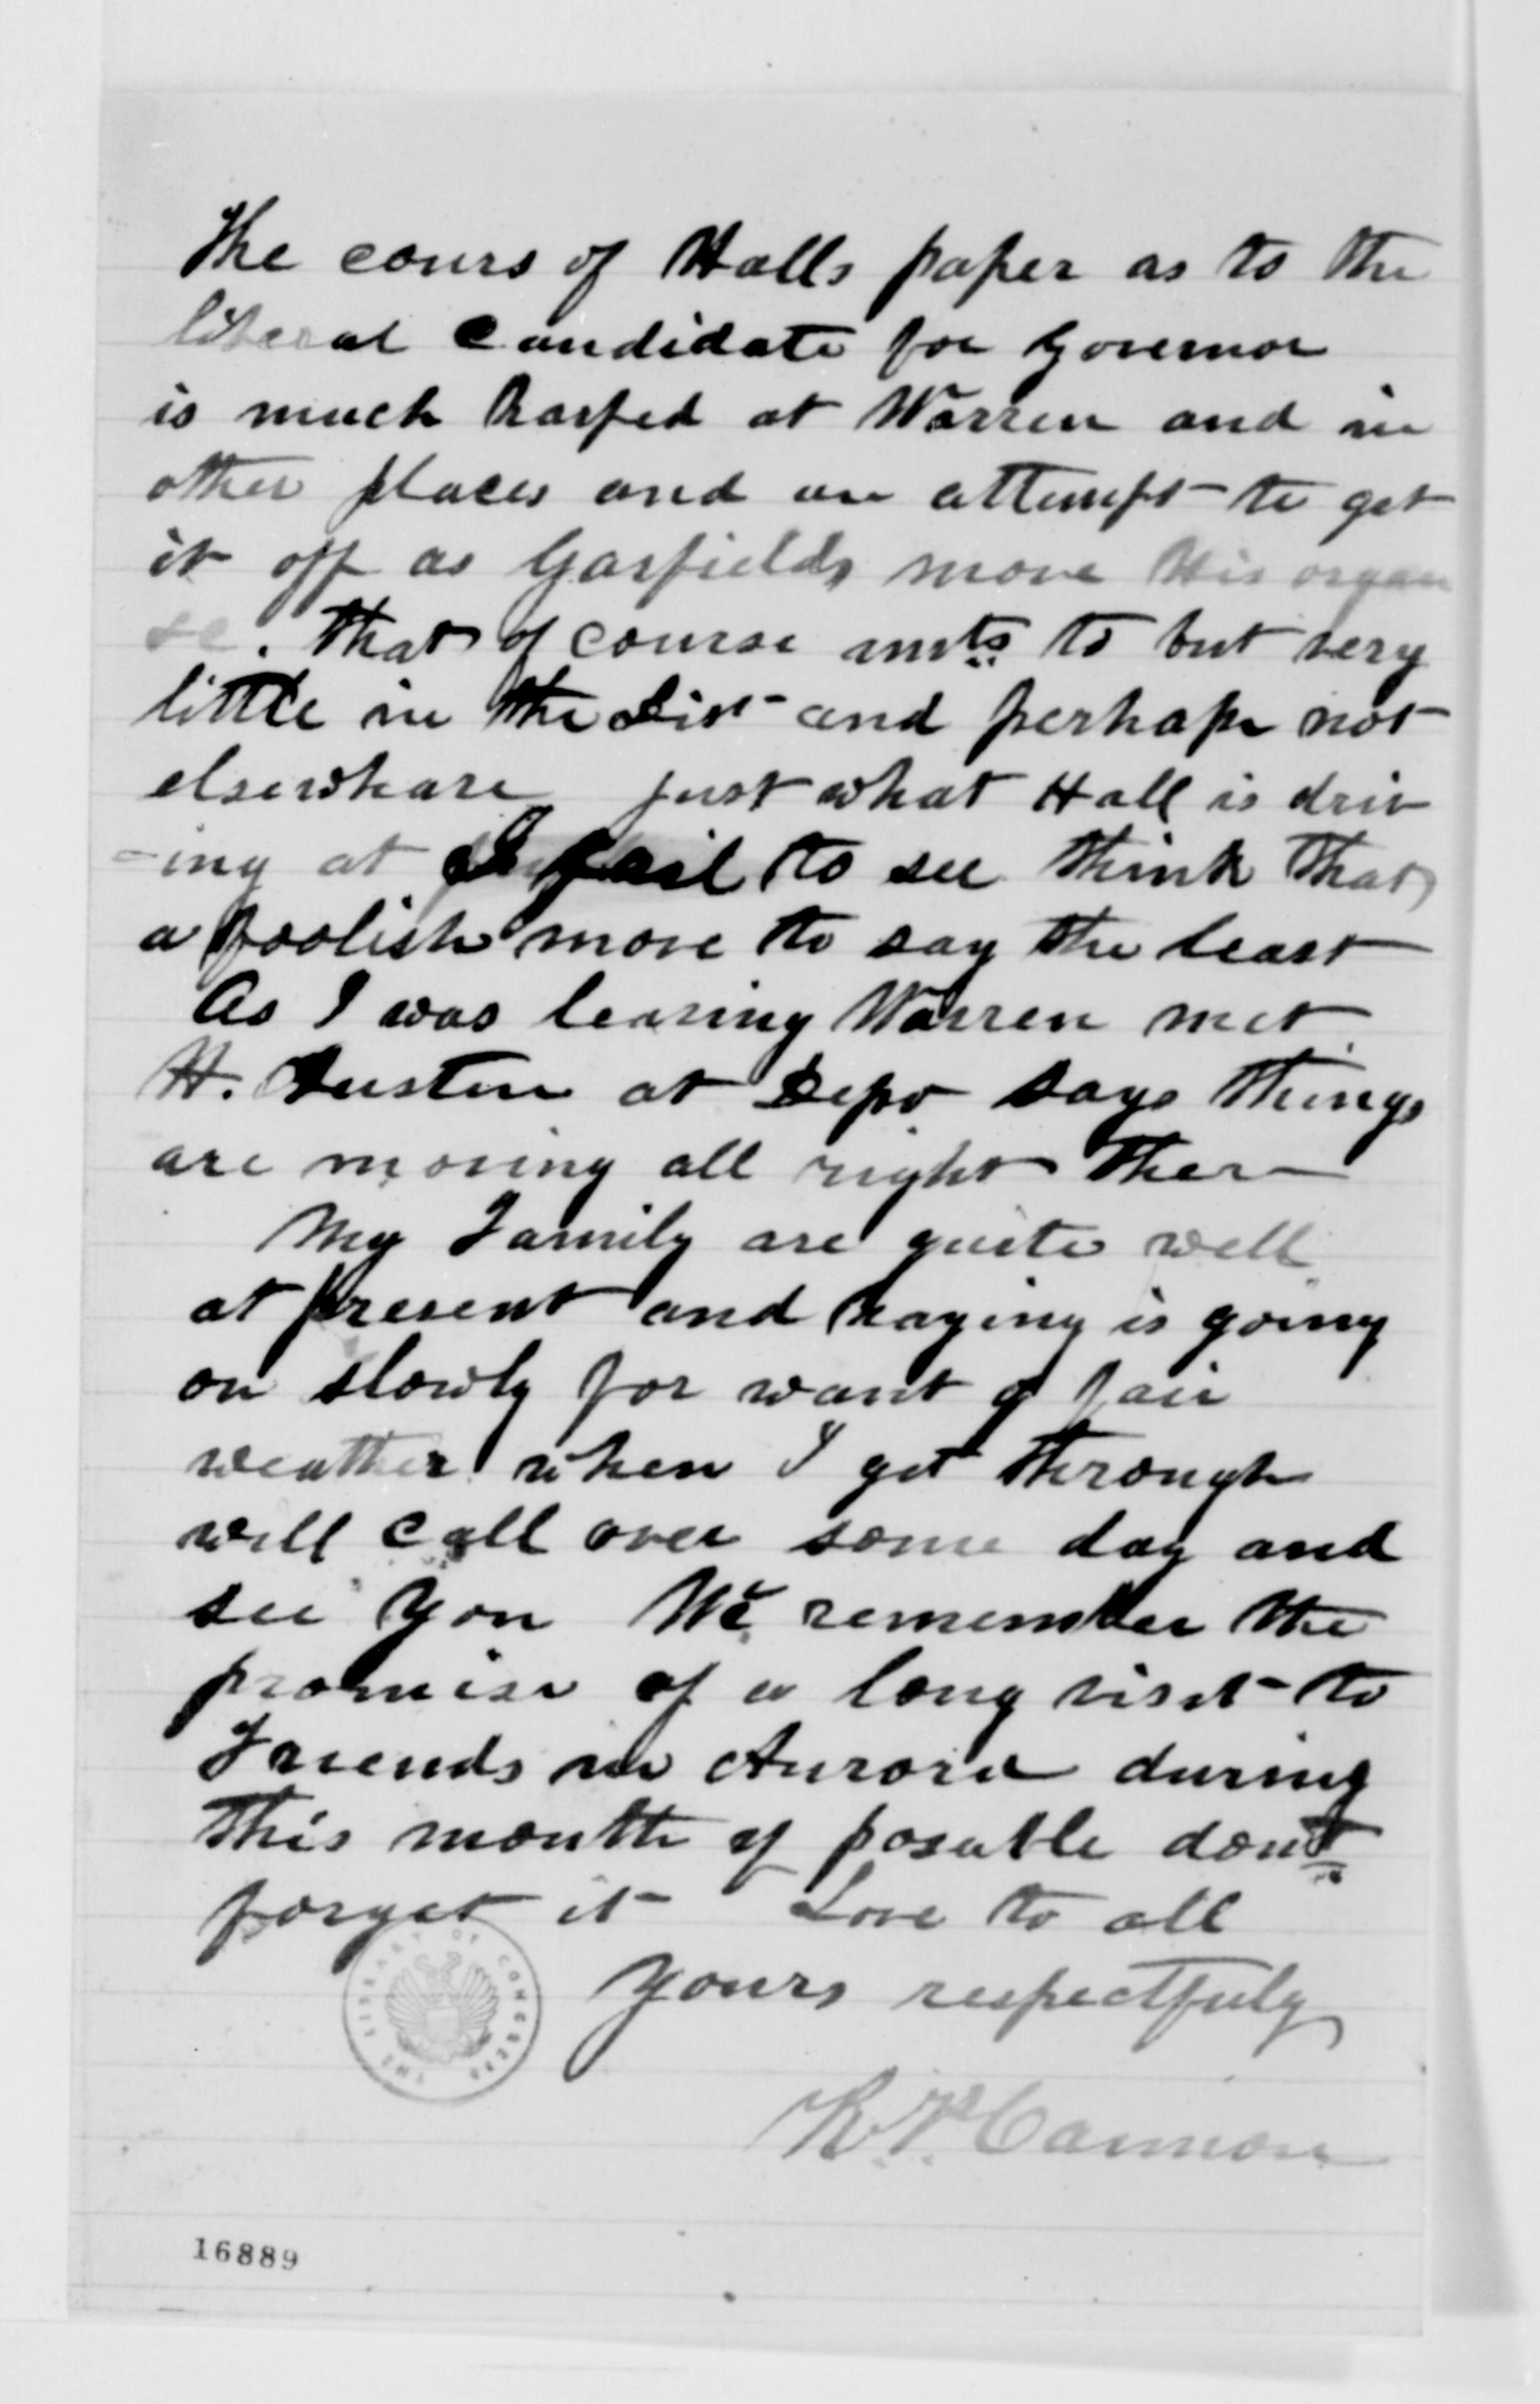 The cours of Halls paper as to the
liberal candidate for Governor
is much harped at Warren and in
other places and an attempt to get
it off as Garfields move His organ
&c. That of course amts to but very
little in the Dist and perhaps not
elsewhare just what Hall is driv
-ing at I fail to see think that
a foolish move to say the least
As I was leaving Warren met
H. Austin at Depo says things
are moving all right ther
My Family are quite well
at present and haying is going
on slowly for want of fair
weather when I get through
will call over some day and
see you We remember the
promise of a long visit to
Friends in Aurora during
this month if posable dont
forget it Love to all
Yours respectfuly
R. P. Cannon
THE LIBRARY OF CONGRESS
16889